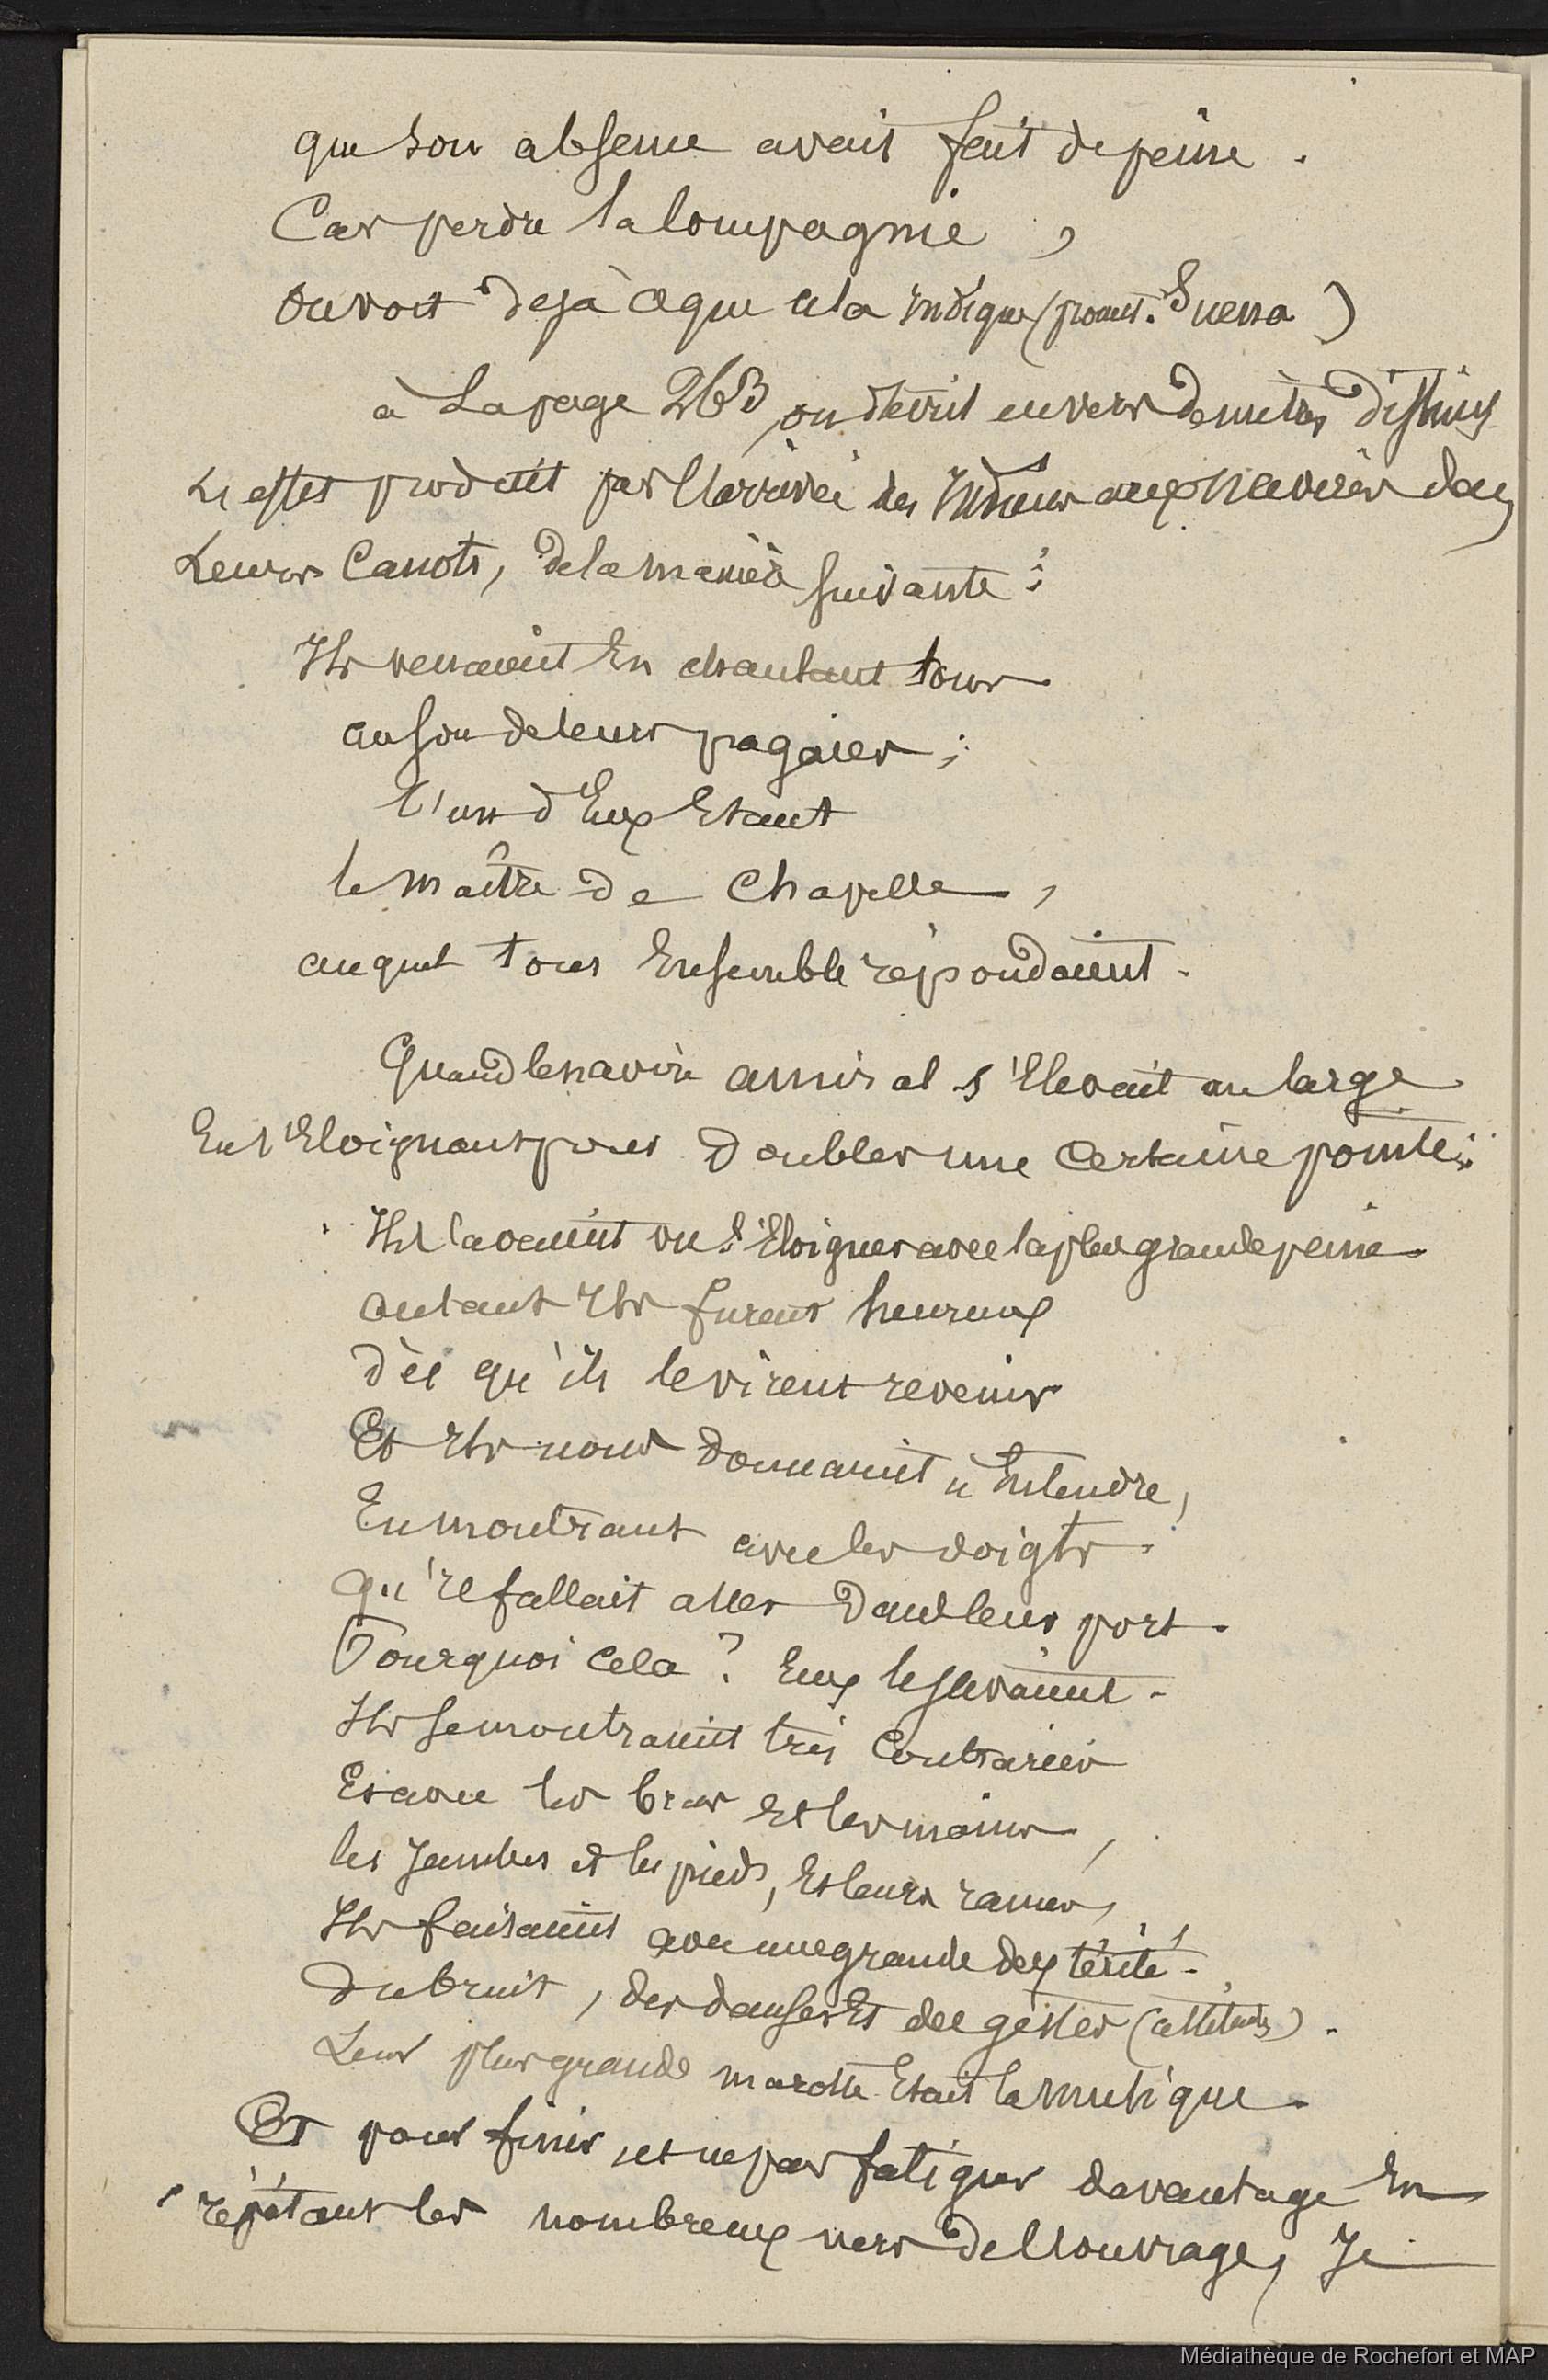 que son absence avait fait de peine.
Car perdre la compagnie,
on voit déjà ce que cela indique (
à La page 263, on décrit en vers de mètres distincts
Les effets produit par l'arrivée des Indiens aux navires dans
Leurs Canots, de la manière suivante:
Ils venaient En chantant tous
au son de leurs pagaies;
l'un d'Eux Etant
le maître de Chapelle,
auquel tous Ensemble répondaient.
Quand le navire amiral s'Elevait au large
En s'Eloignant pour Doubler une Certaine pointe:
Ils l'avaient vu s'Eloigner avec la plus grande peine
autant Ils furent heureux
dès qu'ils le virent revenir
Et Ils nous donnaient à Entendre,
En montrant avec les doigts
qu'il fallait aller Dans leur port.
Pourquoi Cela? Eux le savaient.
Ils se montraient très Contrariés
Et avec les bras Et les mains,
les Jambes et les pieds, Et leurs rames,
Ils faisaient avec une grande dextérité
du bruit, des danses Et des gestes (attitudes).
Leur plus grande marotte Etait la musique.
Et pour finir, et ne pas fatiguer davantage En
répétant les nombreux vers de l'ouvrage, Je
Médiathèque de Rochefort et MAP